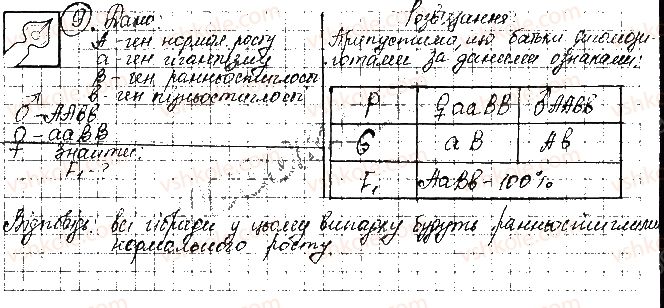 9. Дано:
A - ген нормал. росту
a - ген гігантизму
B - ген ранньостиглості
b - ген пізньостиглості
♂ - AABB
♀ - aaBB
Знайти:
F₁ - ?
Розв'язання:
Припустимо, що батьки дигомози-
готами за даними ознаками:
P ♀ aaBB ♂ AAbb
G aB Ab
F₁ AaBb - 100%
Відповідь: всі гібриди у цьому випадку будуть ранньостиглими
нормального росту.